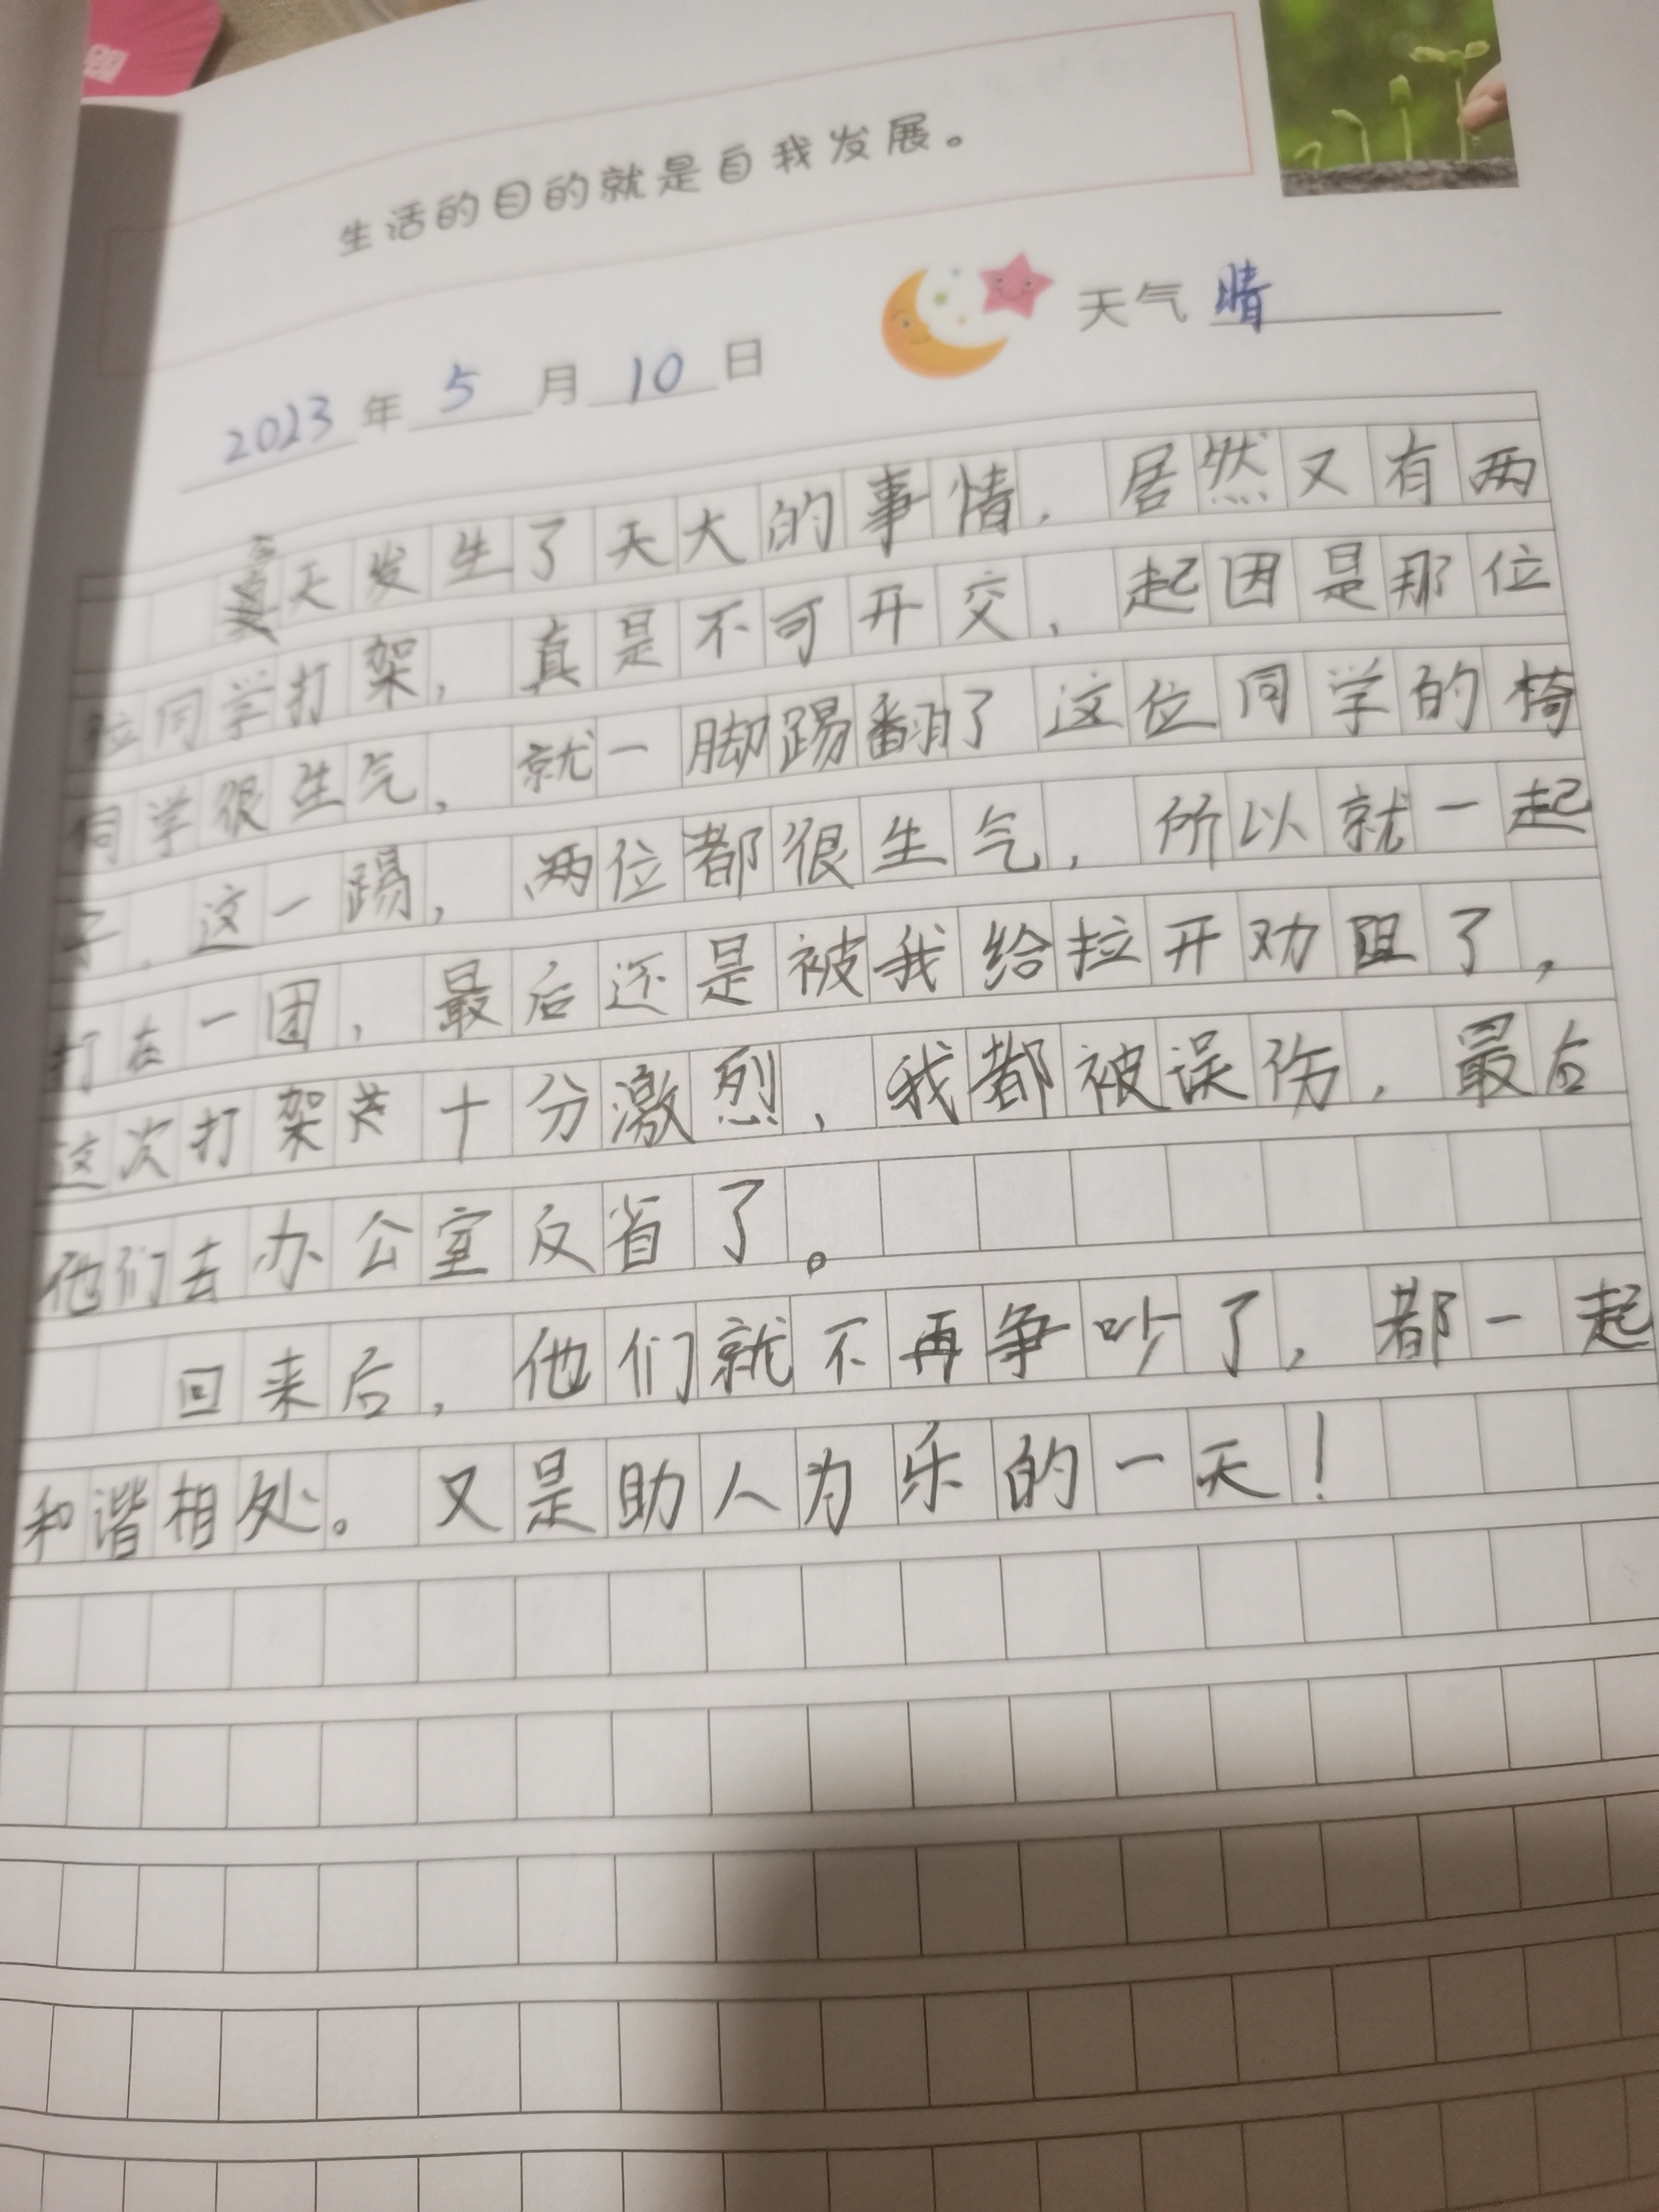 生活的目的就是自我发展。
2023年 5 月 10 日 天气 晴
天发生了天大的事情，居然又有两
位同学打架，真是不可开交，起因是那位
同学很生气，就一脚踢翻了这位同学的椅
子，这一踢，两位都很生气，所以就一起
打在一团，最后还是被我给拉开劝阻了，
这次打架十分激烈，我都被误伤，最后
他们去办公室反省了。
回来后，他们就不再争吵了，都一起
和谐相处。又是助人为乐的一天！